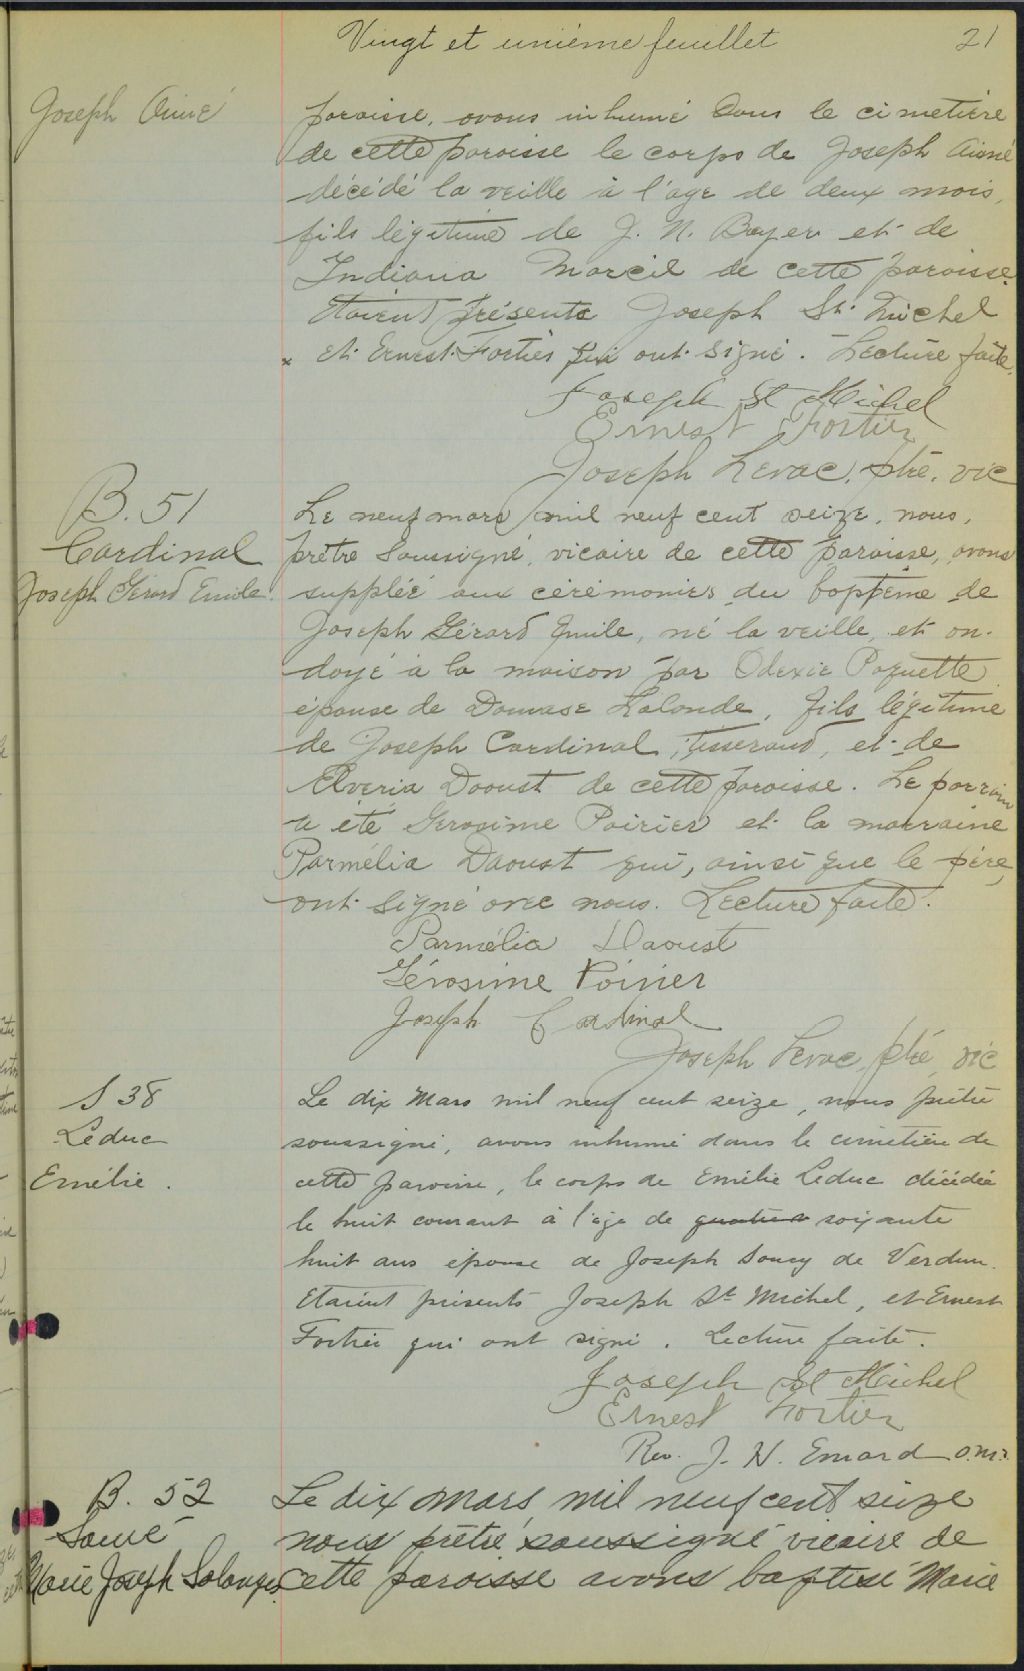 Vingt et unième feuillet 21
Joseph Aimé
paroisse, avons inhumé dans le cimetière
de cette paroisse le corps de Joseph Aimé
décédé la veille à l'age de deux mois,
fils légitime de J. N. Boyer et de
Indiana Marcil de cette paroisse.
Etaient présents Joseph St. Michel
x et Ernest Fortier qui ont signé. Lecture faite.
Joseph St Michel
Ernest Fortier
Joseph Levac, ptre. vic
B. 51
Cardinal
Joseph Gérard Emile.
Le neuf mars mil neuf cent seize, nous,
prêtre soussigné, vicaire de cette paroisse, avons
suppléé aux cérémonies du baptême de
Joseph Gérard Emile, né la veille, et on-
doyé à la maison par Odexie Paquette
épouse de Damase Lalonde, fils légitime
de Joseph Cardinal, tisserand, et de
Elveria Daoust de cette paroisse. Le parrain
a été Gerosime Poirier et la marraine
Parmélia Daoust qui, ainsi que le père,
ont signé avec nous. Lecture faite.
Parmélia Daoust
Gérosime Poirier
Joseph Cardinal
Joseph Levac, ptré, vic
S 38
Leduc
Emélie.
Le dix Mars mil neuf cent seize, nous prêtre
soussigné, avons inhumé dans le cimetière de
cette paroisse, le corps de Emélie Leduc décédée
le huit courant à l'age de soixante
huit ans épouse de Joseph Soucy de Verdun.
Etaient présents Joseph St Michel, et Ernest
Fortier qui ont signé. Lecture faite.
Joseph St Michel
Ernest Fortier
Rev. J. H. Emard o.m.i.
B. 52
Sauvé
Marie Joseph Solanges
Le dix mars mil neuf cent seize
nous prêtre soussigné vicaire de
cette paroisse avons baptisé Marie